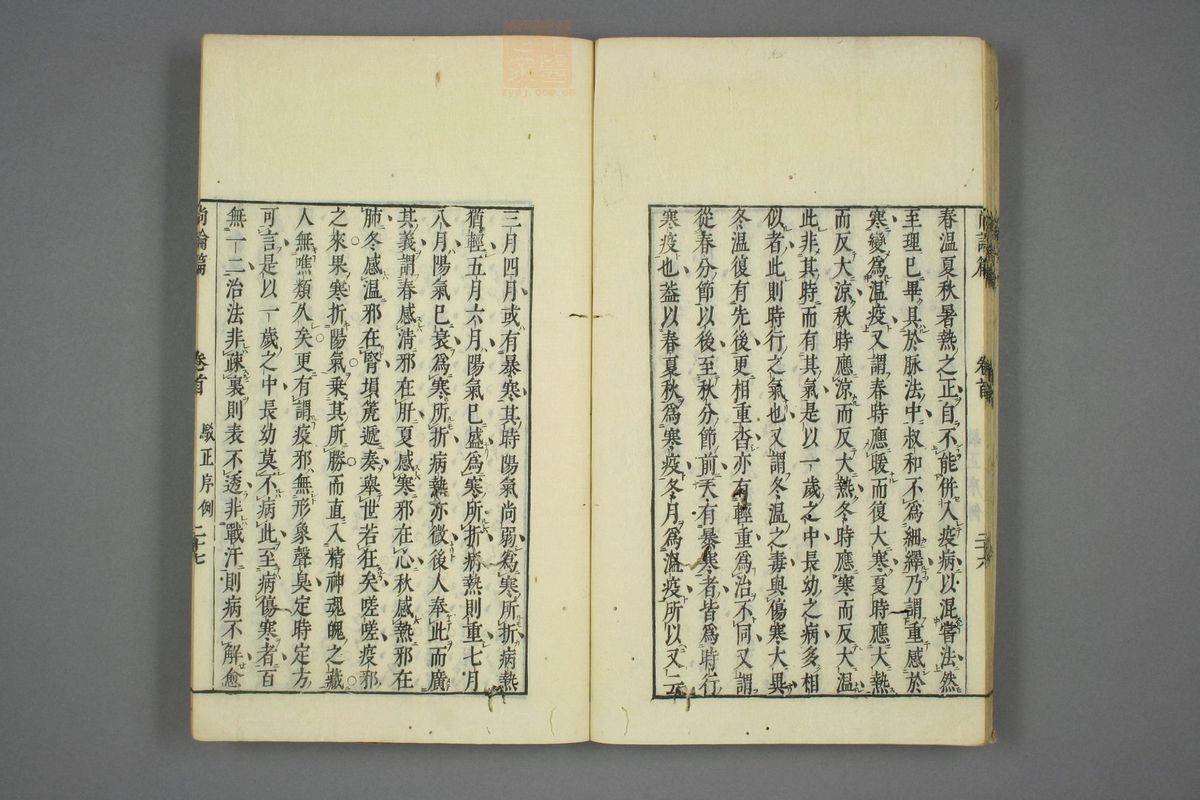 尚論篇 卷首 二十六
春温夏秋暑熱之正自不能併入疫病以混嘗法然
至理已畢具於脉法中叔和不爲細繹乃謂重感於
寒變爲温疫又謂春時應暖而復大寒夏時應大熱
而反大涼秋時應涼而反大熱冬時應寒而反大温
此非其時而有其氣是以一歲之中長幼之病多相
似者此則時行之氣也又謂冬温之毒與傷寒大異
冬温復有先後更相重沓亦有輕重爲治不同又謂
從春分節以後至秋分節前天有暴寒者皆爲時行
寒疫也葢以春夏秋爲寒疫冬月爲温疫所以又云
三月四月或有暴寒其時陽氣尚弱爲寒所折病熱
猶輕五月六月陽氣已盛爲寒所折病熱則重七月
八月陽氣已衰爲寒所折病熱亦微後人奉此而廣
其義謂春感清邪在肝夏感寒邪在心秋感熱邪在
肺冬感温邪在腎塤箎遞奏舉世若狂矣嗟嗟疫邪
之來果寒折陽氣乗其所勝而直入精神魂魄之藏
人無噍類久矣更有謂疫邪無形象聲臭定時定方
可言是以一歲之中長幼莫不病此至病傷寒者百
無一二治法非疎裏則表不透非戰汗則病不解愈
尚論篇 卷首 駁正序例 二十七